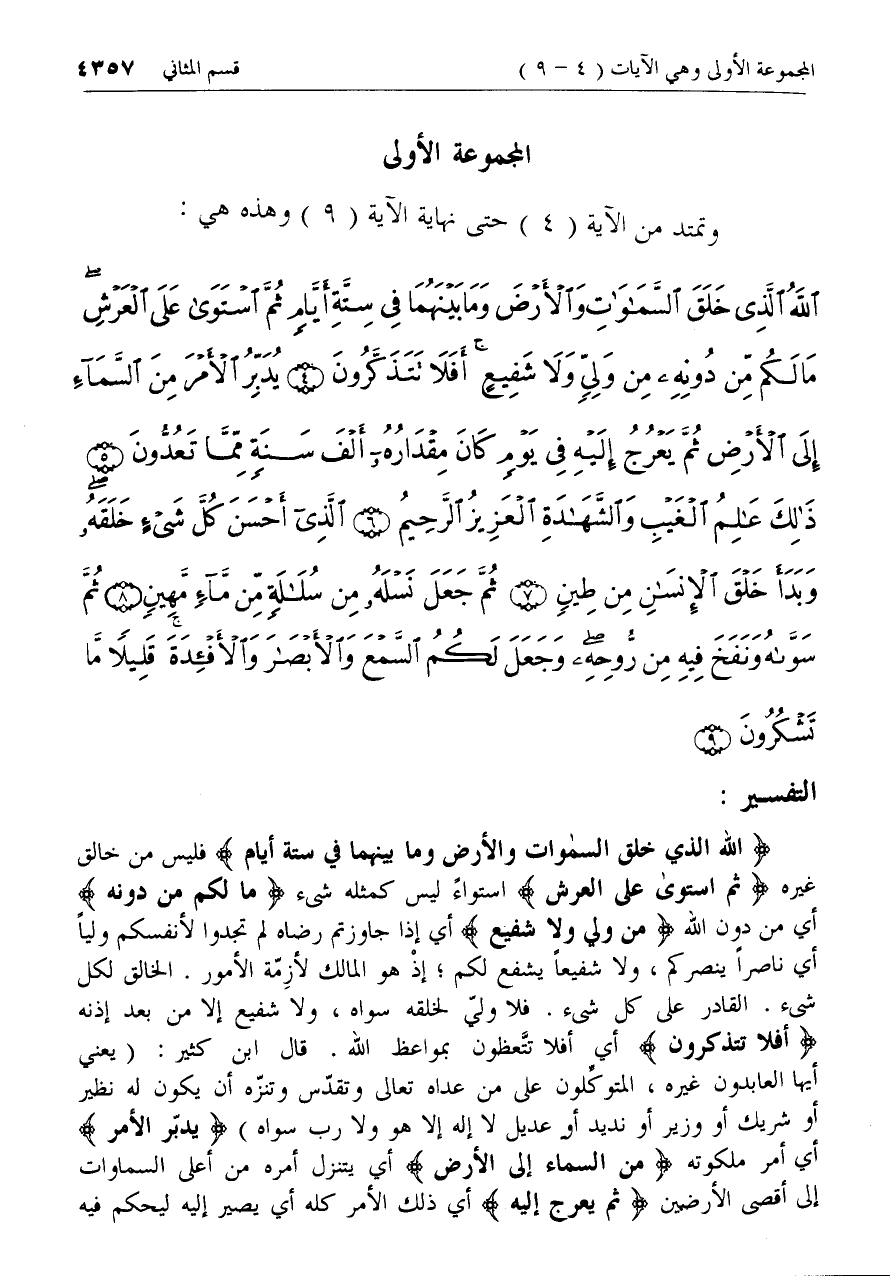 المجموعة الأولى وهي الآيات ( ٤ - ٩ ) قسم المثاني ٤٣٥٧
المجموعة الأولى
وتمتد من الآية ( ٤ ) حتى نهاية الآية ( ٩ ) وهذه هي :
ٱللَّهُ ٱلَّذِى خَلَقَ ٱلسَّمَٰوَٰتِ وَٱلْأَرْضَ وَمَا بَيْنَهُمَا فِى سِتَّةِ أَيَّامٍ ثُمَّ ٱسْتَوَىٰ عَلَى ٱلْعَرْشِ ۖ
مَا لَكُم مِّن دُونِهِۦ مِن وَلِىٍّ وَلَا شَفِيعٍ ۚ أَفَلَا تَتَذَكَّرُونَ ﴿٤﴾ يُدَبِّرُ ٱلْأَمْرَ مِنَ ٱلسَّمَآءِ
إِلَى ٱلْأَرْضِ ثُمَّ يَعْرُجُ إِلَيْهِ فِى يَوْمٍ كَانَ مِقْدَارُهُۥٓ أَلْفَ سَنَةٍ مِّمَّا تَعُدُّونَ ﴿٥﴾
ذَٰلِكَ عَٰلِمُ ٱلْغَيْبِ وَٱلشَّهَٰدَةِ ٱلْعَزِيزُ ٱلرَّحِيمُ ﴿٦﴾ ٱلَّذِىٓ أَحْسَنَ كُلَّ شَىْءٍ خَلَقَهُۥ ۖ
وَبَدَأَ خَلْقَ ٱلْإِنسَٰنِ مِن طِينٍ ﴿٧﴾ ثُمَّ جَعَلَ نَسْلَهُۥ مِن سُلَٰلَةٍ مِّن مَّآءٍ مَّهِينٍ ﴿٨﴾ ثُمَّ
سَوَّىٰهُ وَنَفَخَ فِيهِ مِن رُّوحِهِۦ ۖ وَجَعَلَ لَكُمُ ٱلسَّمْعَ وَٱلْأَبْصَٰرَ وَٱلْأَفْـِٔدَةَ ۚ قَلِيلًا مَّا
تَشْكُرُونَ ﴿٩﴾
التفسير :
﴿ الله الذي خلق السمٰوات والأرض وما بينهما في ستة أيام ﴾ فليس من خالق
غيره ﴿ ثم استوىٰ على العرش ﴾ استواءً ليس كمثله شىء ﴿ ما لكم من دونه ﴾
أي من دون الله ﴿ من ولي ولا شفيع ﴾ أي إذا جاوزتم رضاه لم تجدوا لأنفسكم ولياً
أي ناصراً ينصركم ، ولا شفيعاً يشفع لكم ؛ إذْ هو المالك لأزِمّة الأمور . الخالق لكل
شىء . القادر على كل شىء . فلا وليّ لخلقه سواه ، ولا شفيع إلا من بعد إذنه
﴿ أفلا تتذكرون ﴾ أي أفلا تتَّعظون بمواعظ الله . قال ابن كثير : ( يعني
أيها العابدون غيره ، المتوكِّلون على من عداه تعالى وتقدّس وتنزّه أن يكون له نظير
أو شريك أو وزير أو نديد أو عديل لا إله إلا هو ولا رب سواه ) ﴿ يدبّر الأمر ﴾
أي أمر ملكوته ﴿ من السماء إلى الأرض ﴾ أي يتنزل أمره من أعلى السماوات
إلى أقصى الأرضين ﴿ ثم يعرج إليه ﴾ أي ذلك الأمر كله أي يصير إليه ليحكم فيه